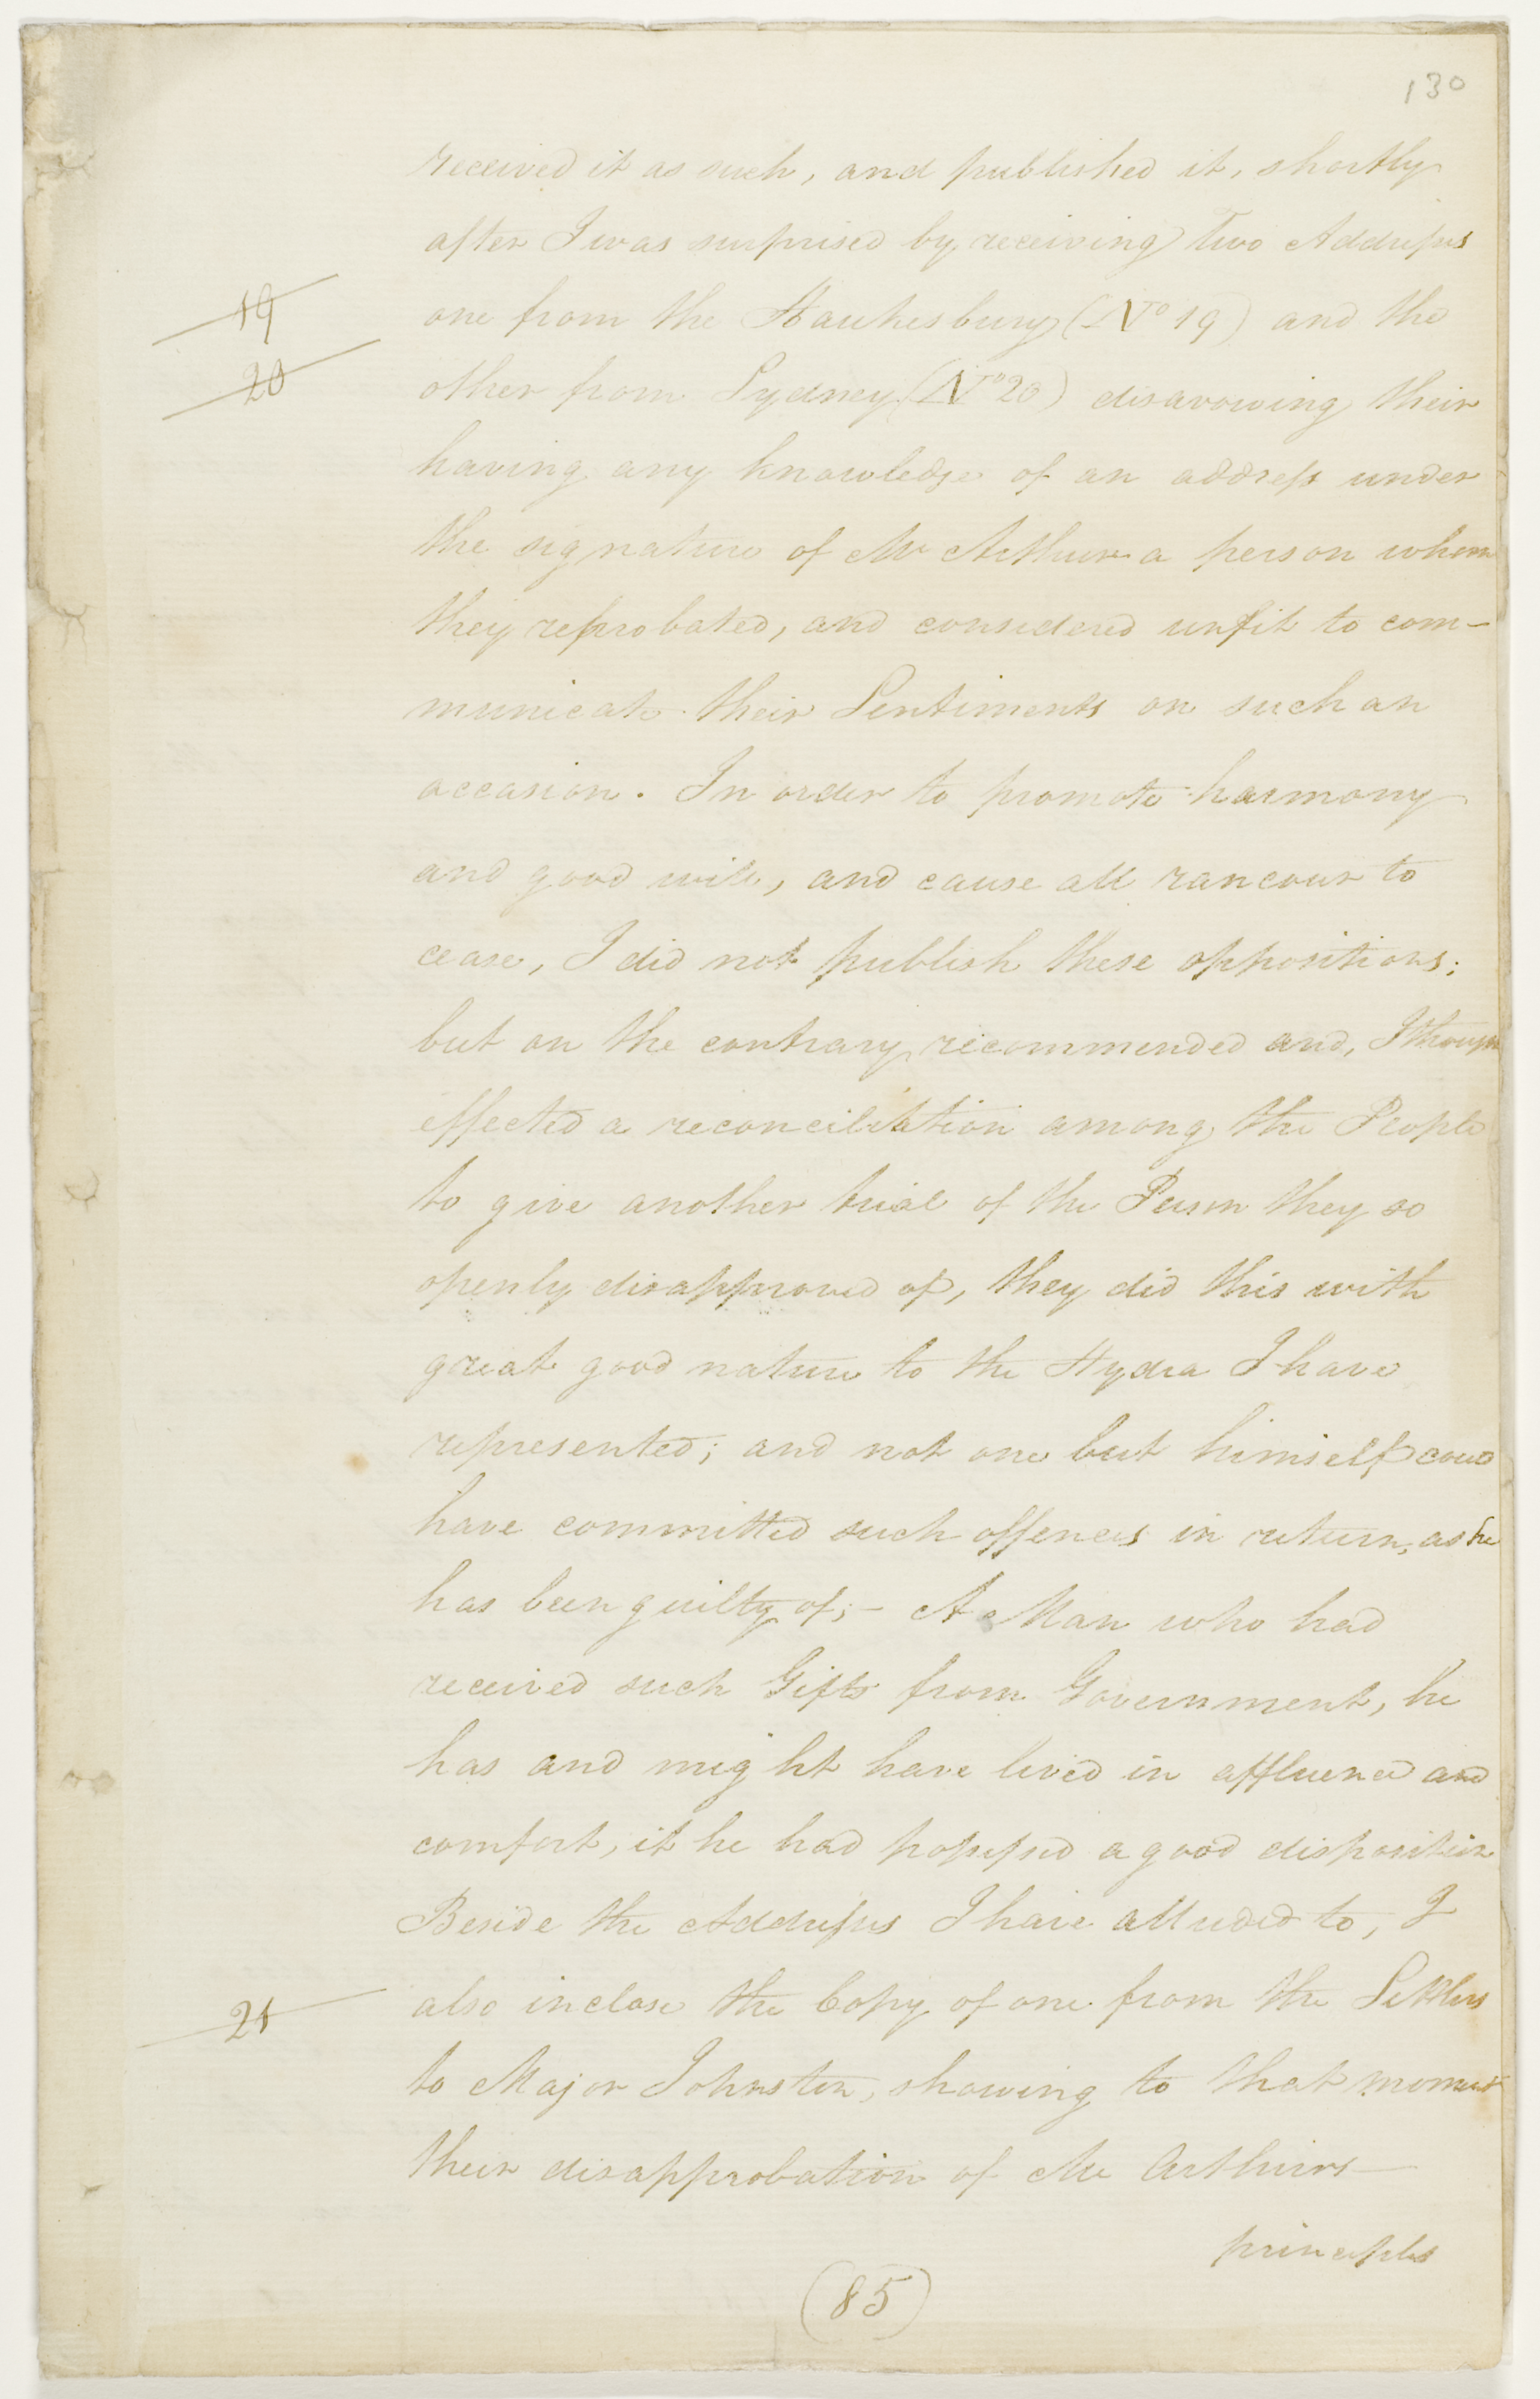 130
received it as such, and published it, shortly
after I was surprised by receiving Two Addresses
19
one from the Hawkesbury (No 19) and the
20
other from Sydney (No 20) disavowing their
having any knowledge of an address under
the signature of Mr Arthur a person whom
they reprobated, and considered unfit to com-
municate their Sentiments on such an
occasion. In order to promote harmony
and good will, and cause all rancour to
cease, I did not publish these oppositions;
but on the contrary recommended and, I thought
effected a reconciliation among the People
to give another trial of the Person they so
openly disapproved of, they did this with
great good nature to the Hydra I have
represented; and not one but himself could
have committed such offences in return, as he
has been guilty of;- A Man who had
received such Gifts from Government, he
has and might have lived in affluence and
comfort, if he had possessed a good disposition
Beside the Addresses I have alluded to, I
21
also inclose the Copy of one from the Settlers
to Major Johnston, showing to that moment
their disapprobation of Mc Arthurs
principles
(85)